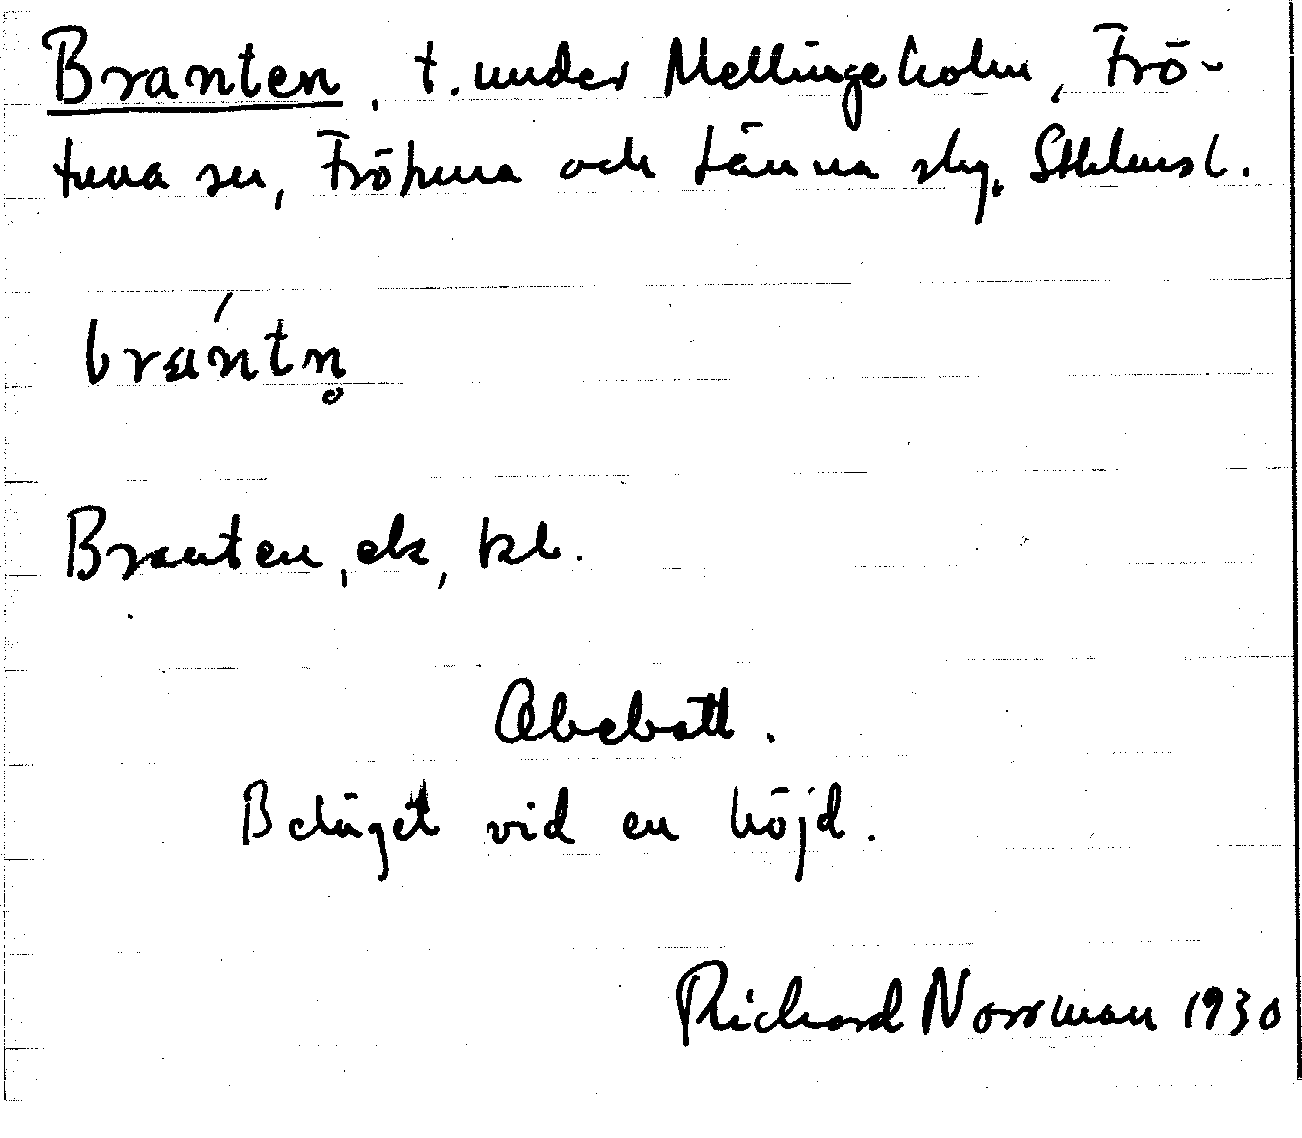 Branten, t. under Mellingeholm, Frö-
tuna sn, Frötuna och Länna skg, Sthlms l.
brántn̥
Branten, ek, kb.
Obebott.
Beläget vid en höjd.
Richard Norrman 1930